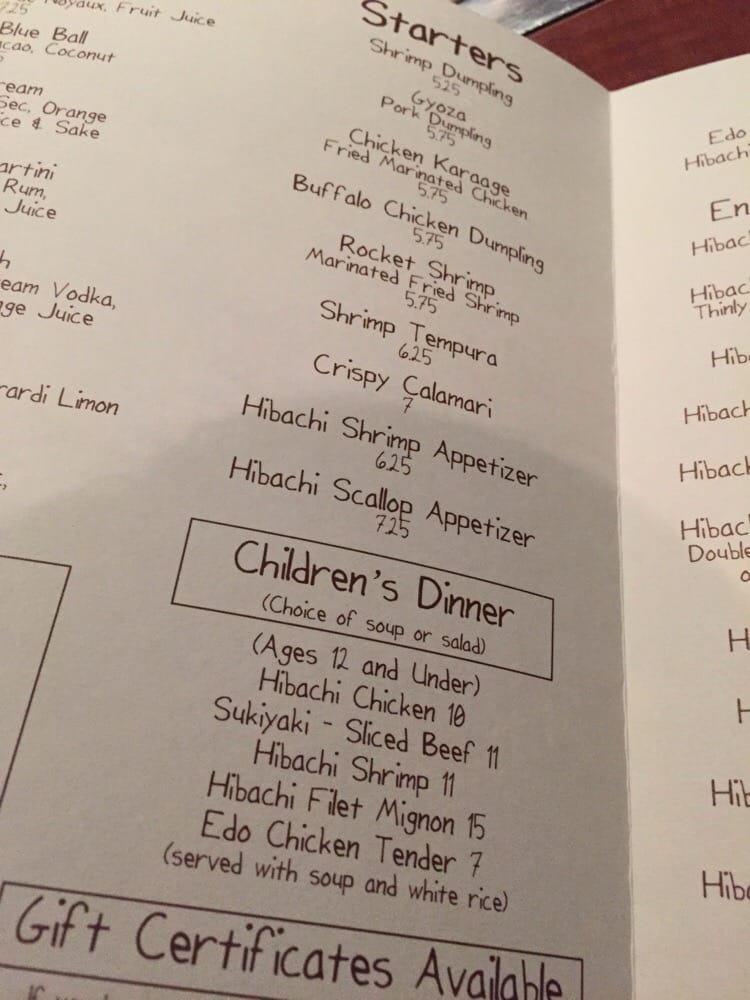 Noyaux, Fruit Juice
7.25
Blue Ball
Coconut
Sec, Orange
& Sake
Rum,
Juice
Vodka,
Juice
Limon
Starters
Shrimp Dumpling
5.25
Gyoza
Pork Dumpling
5.75
Chicken Karaage
Fried Marinated Chicken
5.75
Buffalo Chicken Dumpling
5.75
Rocket Shrimp
Marinated Fried Shrimp
5.75
Shrimp Tempura
6.25
Crispy Calamari
7
Hibachi Shrimp Appetizer
6.25
Hibachi Scallop Appetizer
7.25
Children's Dinner
(Choice of soup or salad)
(Ages 12 and Under)
Hibachi Chicken 10
Sukiyaki - Sliced Beef 11
Hibachi Shrimp 11
Hibachi Filet Mignon 15
Edo Chicken Tender 7
(served with soup and white rice)
Gift Certificates Available
Edo
Hibachi
Thinly
Double